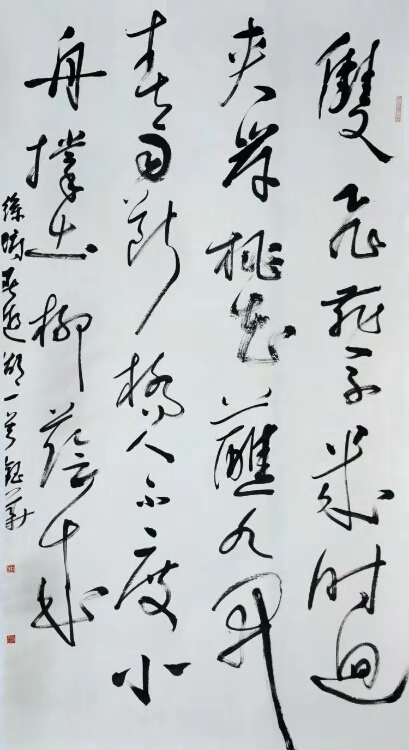 雙飛燕子幾时迴
夾岸桃花蘸水開
春雨斷橋人不度小
舟撐出柳蔭来
徐俯春遊湖一首